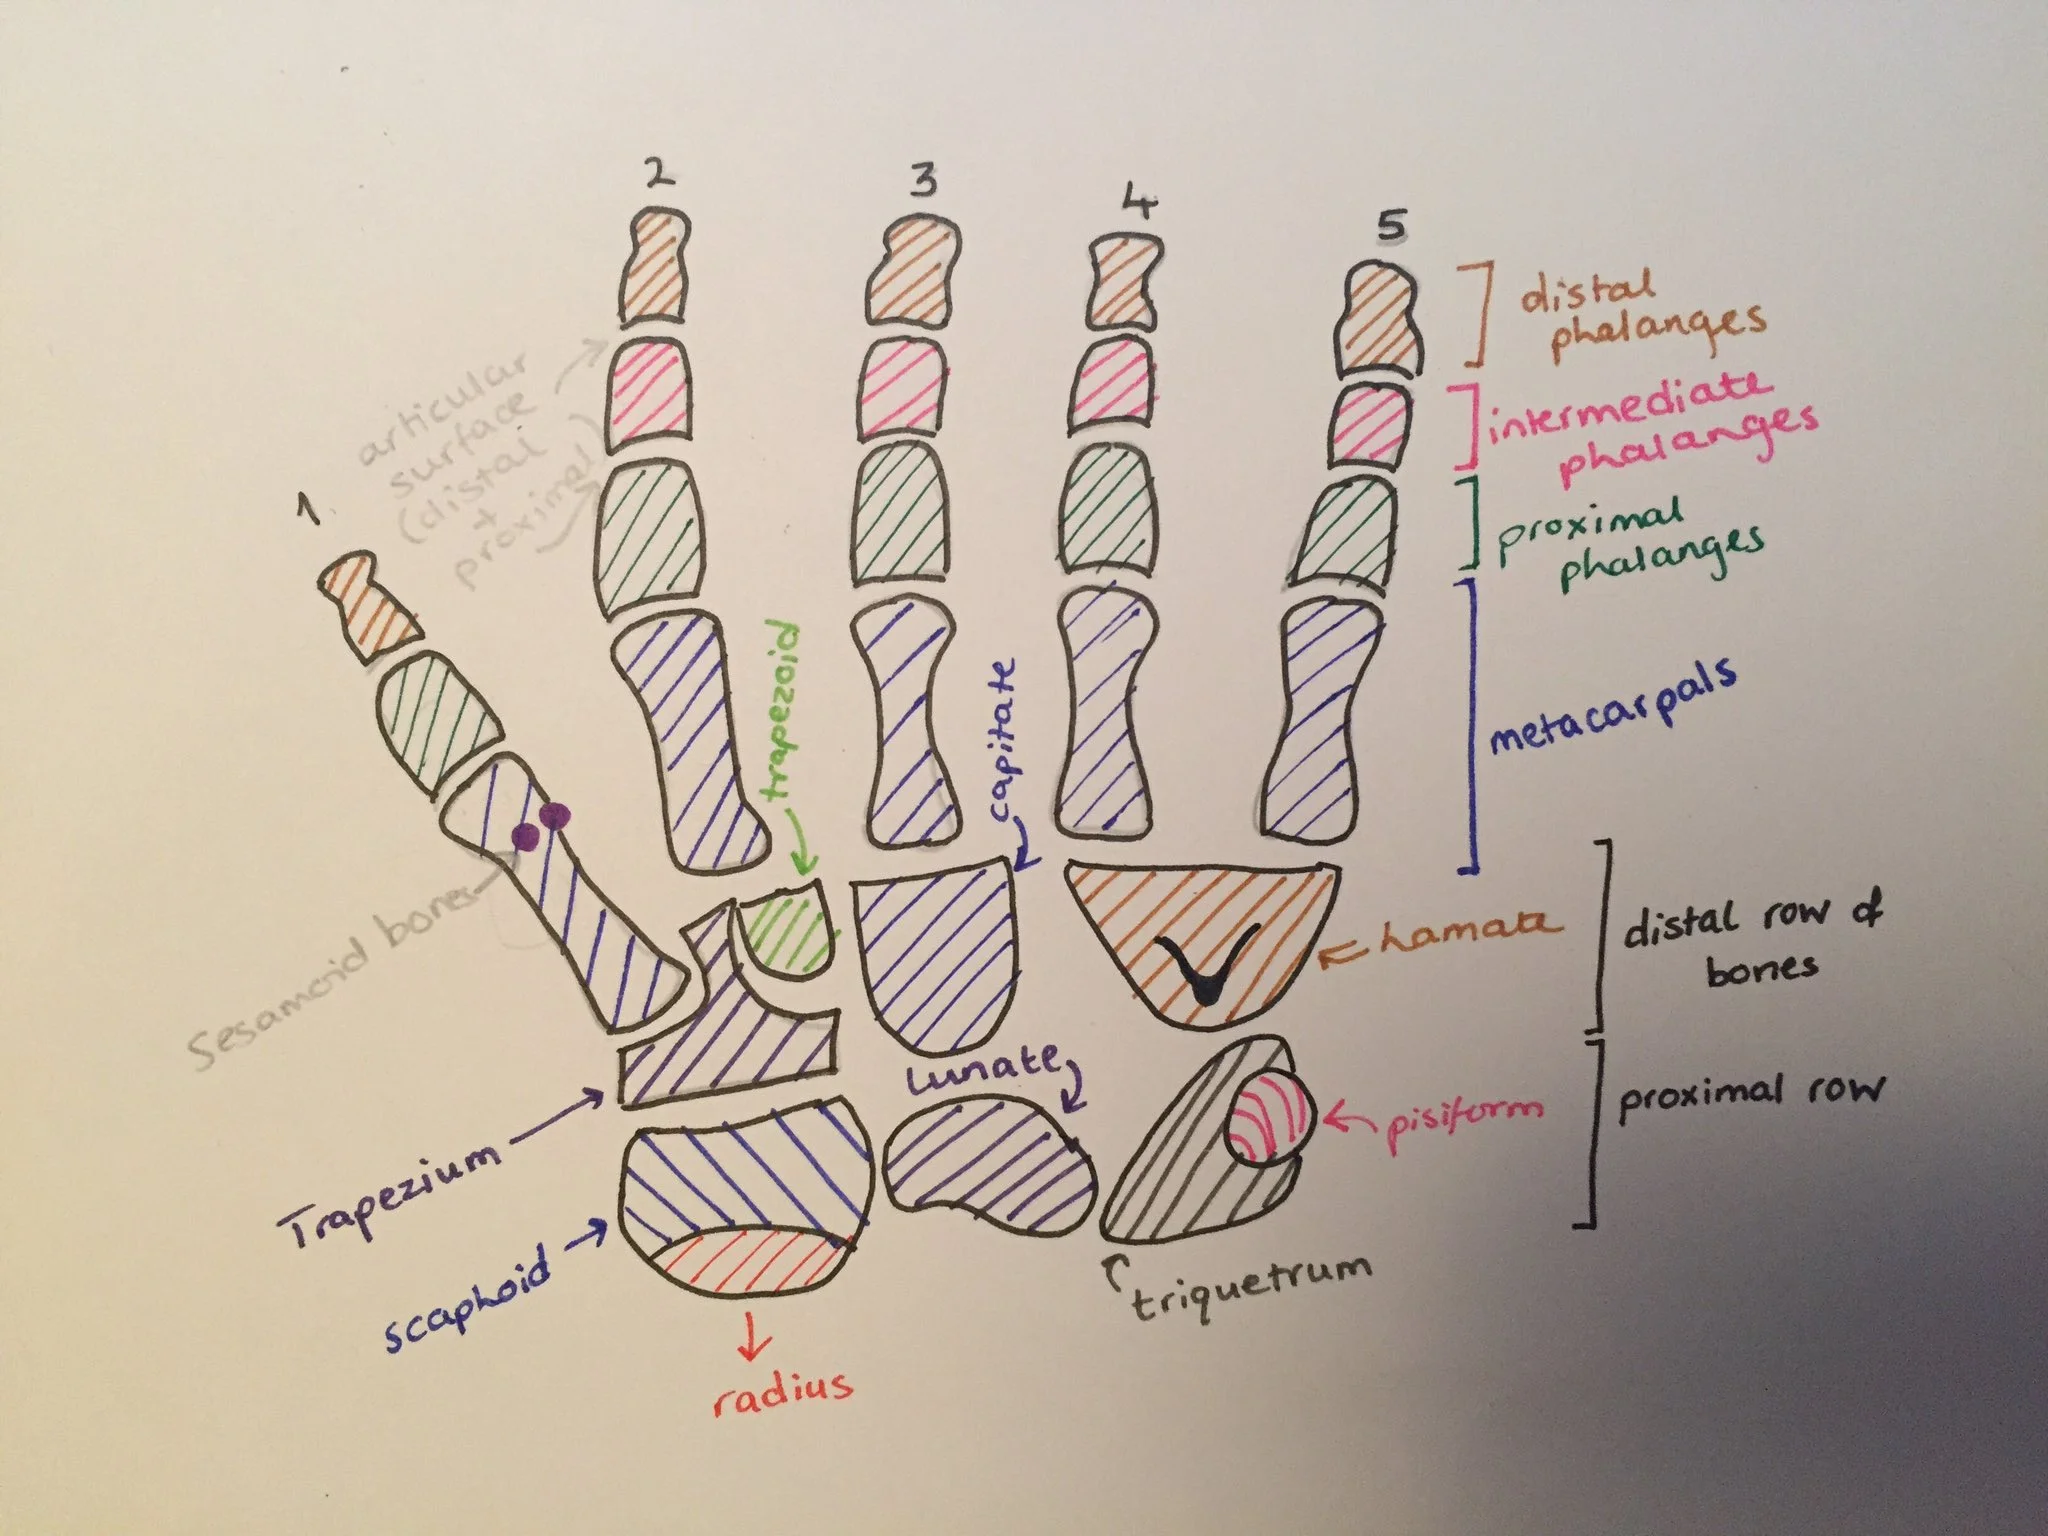 2
3
4
5
1
distal
phalanges
intermediate
phalanges
proximal
phalanges
metacarpals
articular
surface
(distal
+
proximal)
trapezoid
capitate
Sesamoid bones
hamate
distal row of
bones
lunate
proximal row
pisiform
Trapezium
scaphoid
triquetrum
radius